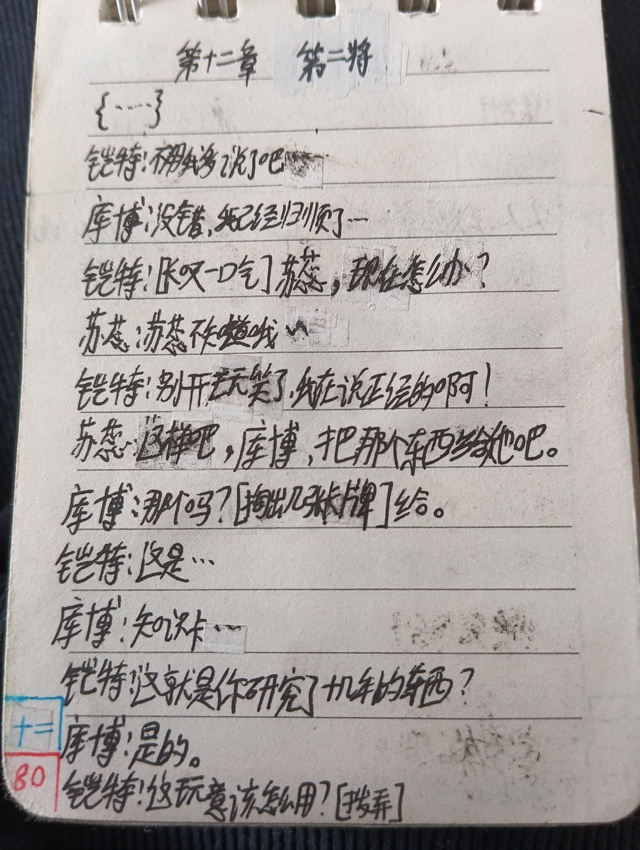 第十二章 第二将
{……}
铠特:不用我多说了吧
库博:没错,我已经归顺了…
铠特:[长叹一口气]苏蕊,现在怎么办?
苏蕊:苏蕊不知道哦~
铠特:别开玩笑了,我在说正经的啊!
苏蕊:这样吧,库博,把那个东西给他吧。
库博:那个吗?[掏出几张卡牌]给。
铠特:这是…
库博:知识卡…
铠特:这就是你研究了十几年的东西?
库博:是的。
铠特:这玩意该怎么用?[拨弄]
十二
80